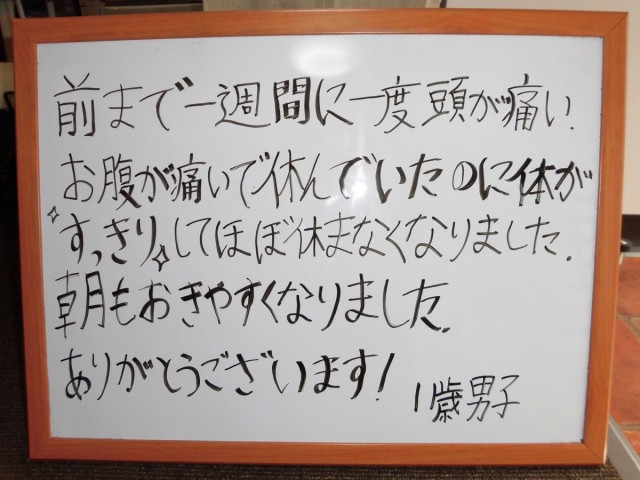 前まで一週間に一度頭が痛い.
お腹が痛いで休んでいたのに体が
すっきりしてほぼ休まなくなりました.
朝もおきやすくなりました.
ありがとうございます!
1歳男子